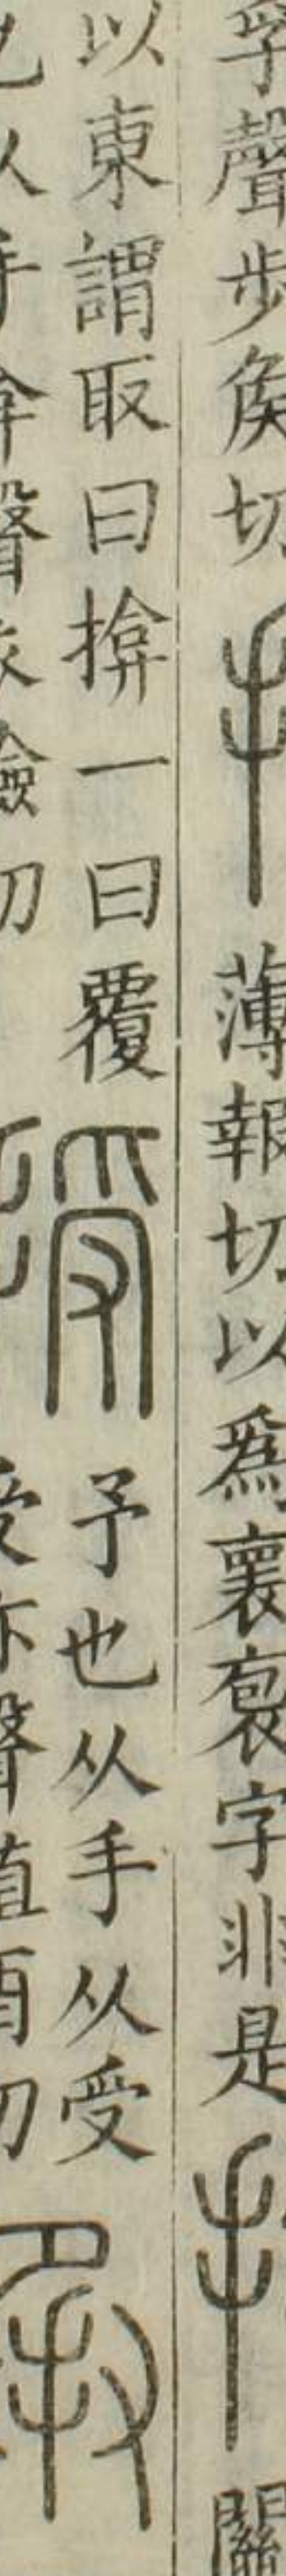 孚聲步矦切 薄報切以爲褱裒字非是 關
以東謂取曰揜一曰覆 予也从手从受
也从手弇聲衣儉切 受亦聲殖酉切